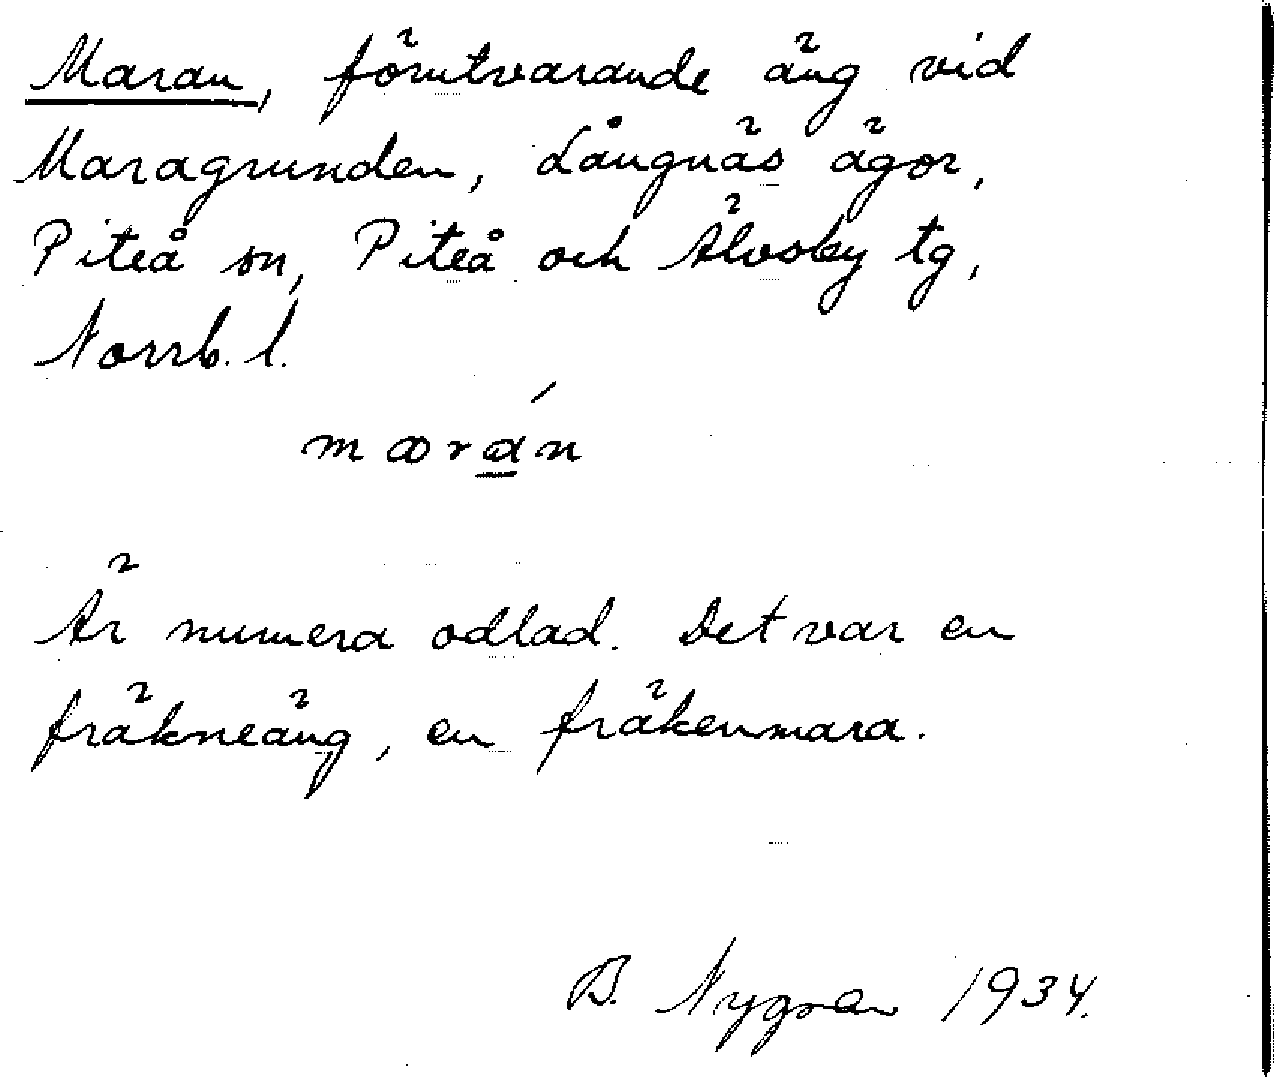 Maran, förutvarande äng vid
Maragrunden, Långnäs ägor,
Piteå sn, Piteå och Älvsby tg,
Norrb. l.
marán
Är numera odlad. Det var en
fräkneäng, en fräkenmara.
B. Nygren 1934.